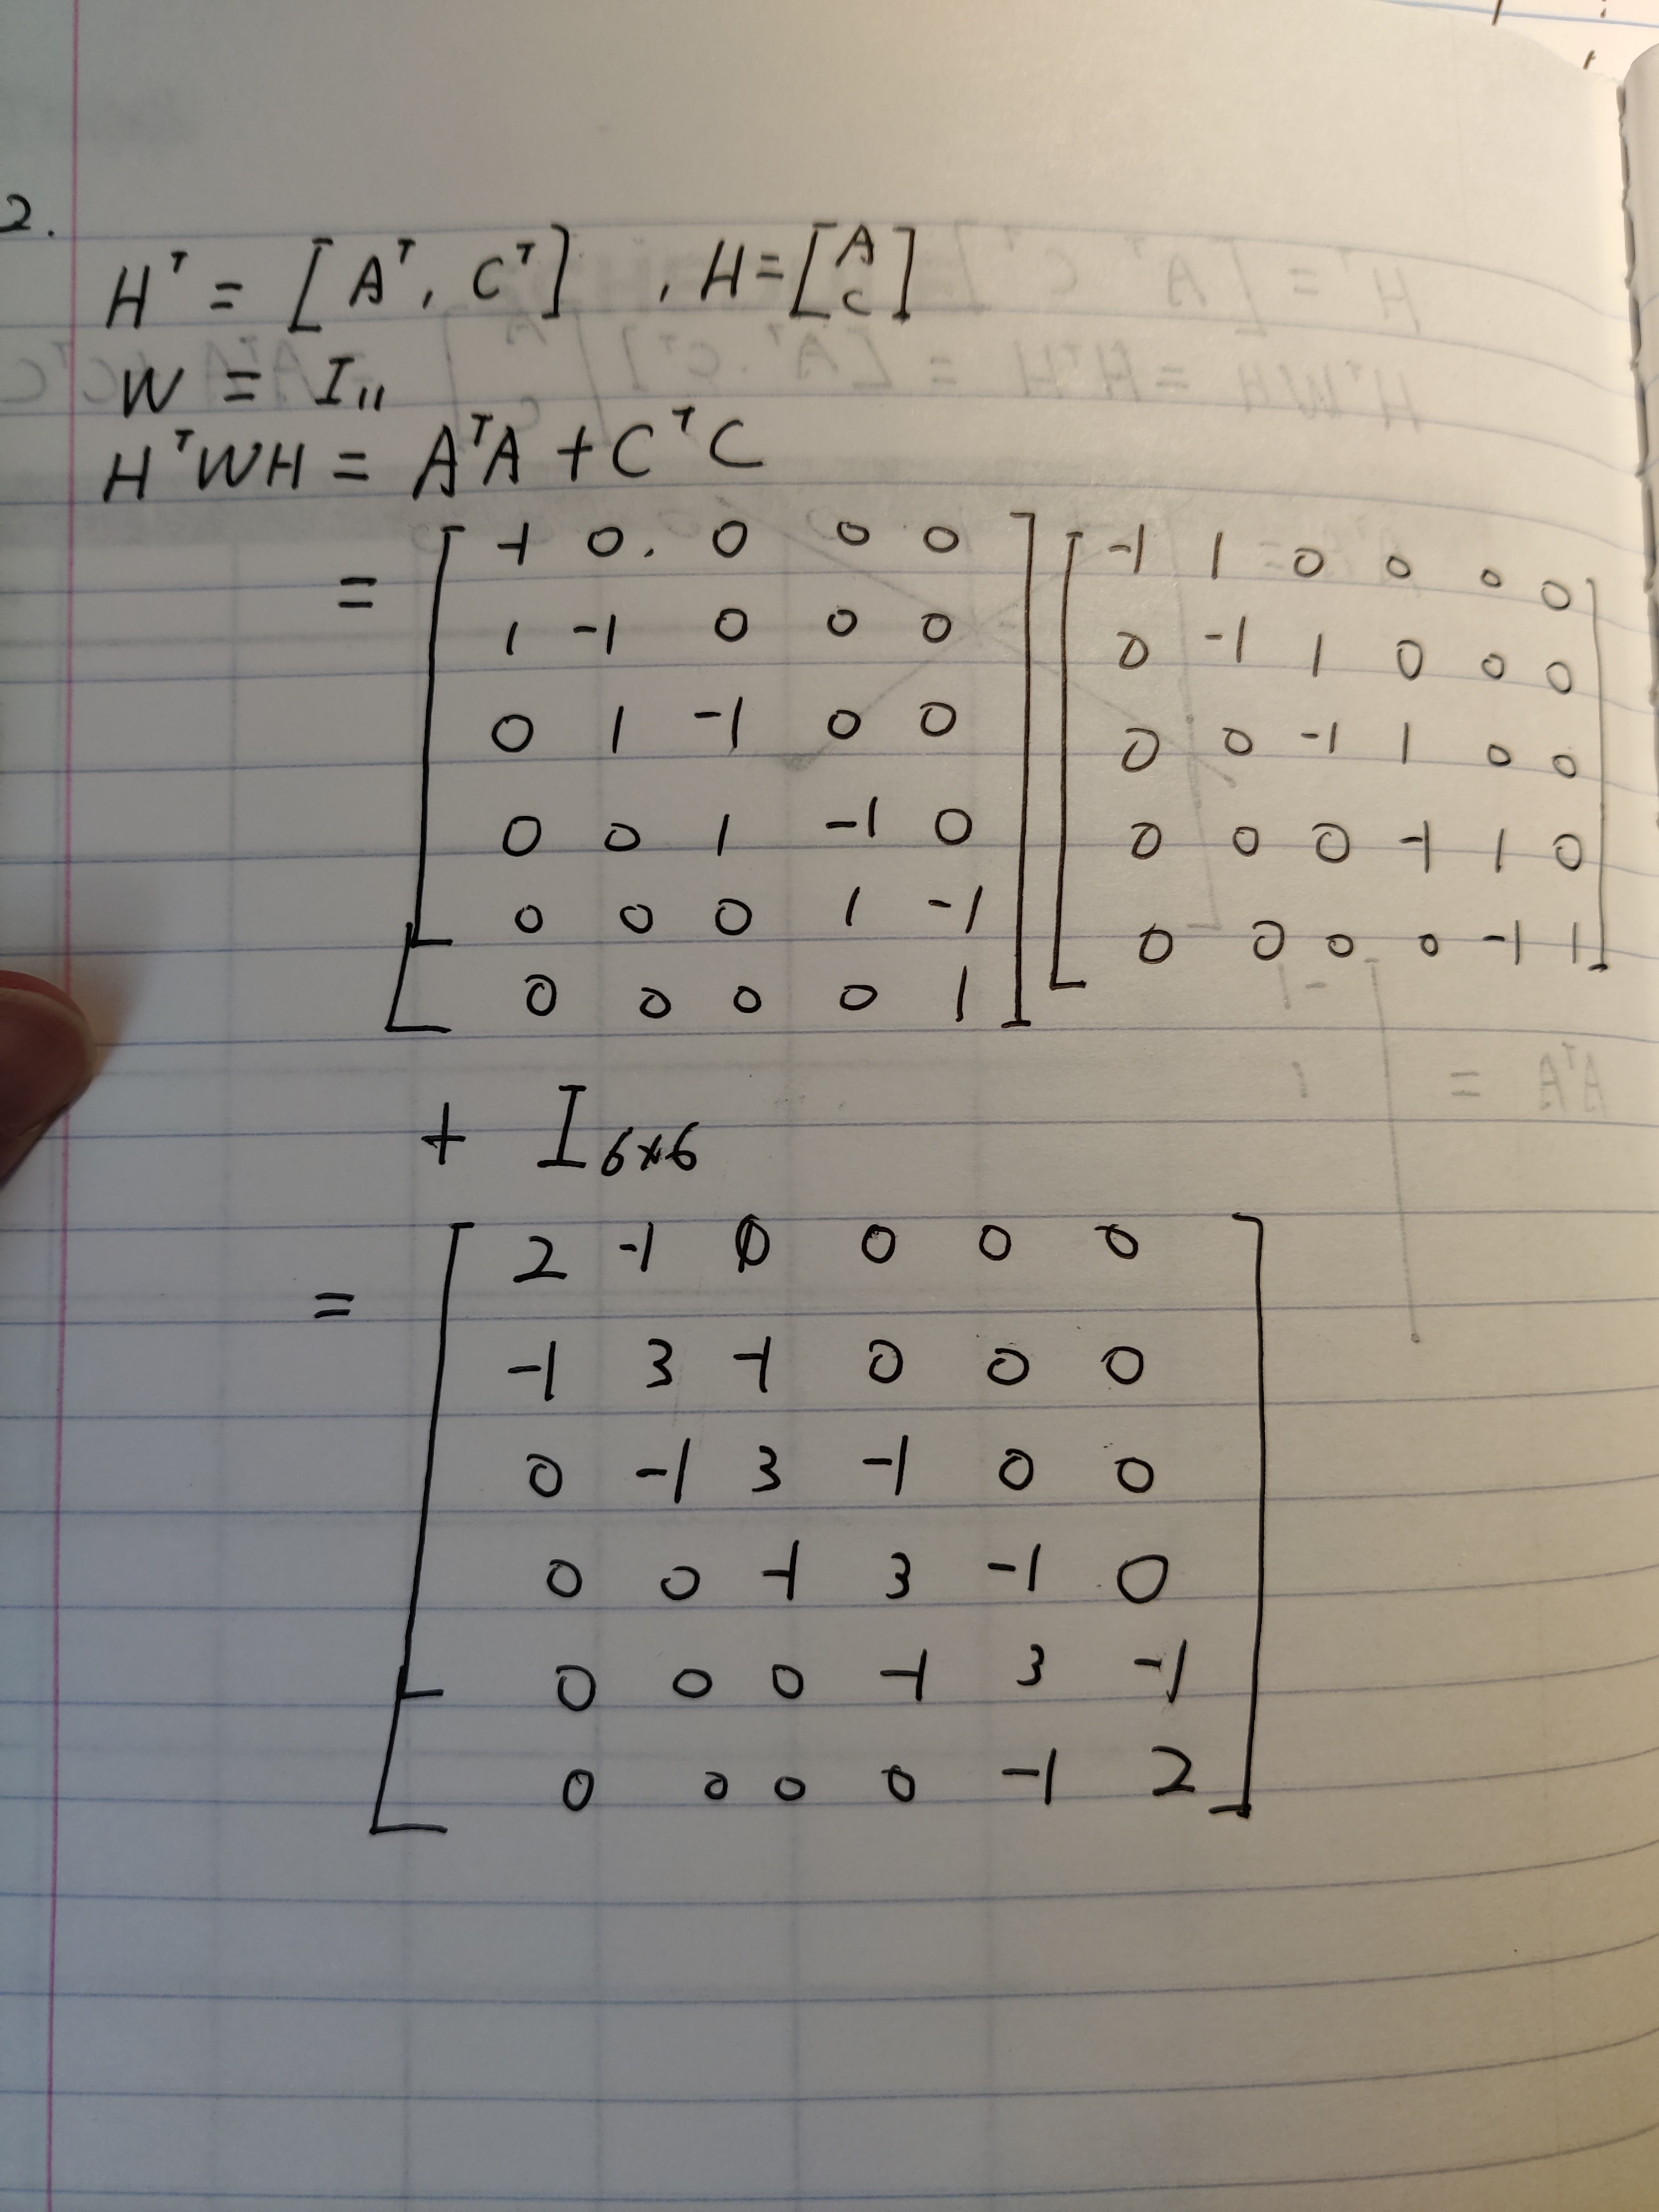 2.
Hᵀ = [Aᵀ, Cᵀ] , H = [A C]
W = I₁₁
HᵀWH = AᵀA + CᵀC
= [ -1 0. 0 0 0 ] [ -1 1 0 0 0 0 ]
1 -1 0 0 0   0 -1 1 0 0 0
0 1 -1 0 0   0 0 -1 1 0 0
0 0 1 -1 0   0 0 0 -1 1 0
0 0 0 1 -1   0 0 0 0 -1 1
0 0 0 0 1
+ I₆ₓ₆
= [ 2 -1 0 0 0 0 ]
-1 3 -1 0 0 0
0 -1 3 -1 0 0
0 0 -1 3 -1 0
0 0 0 -1 3 -1
0 0 0 0 -1 2